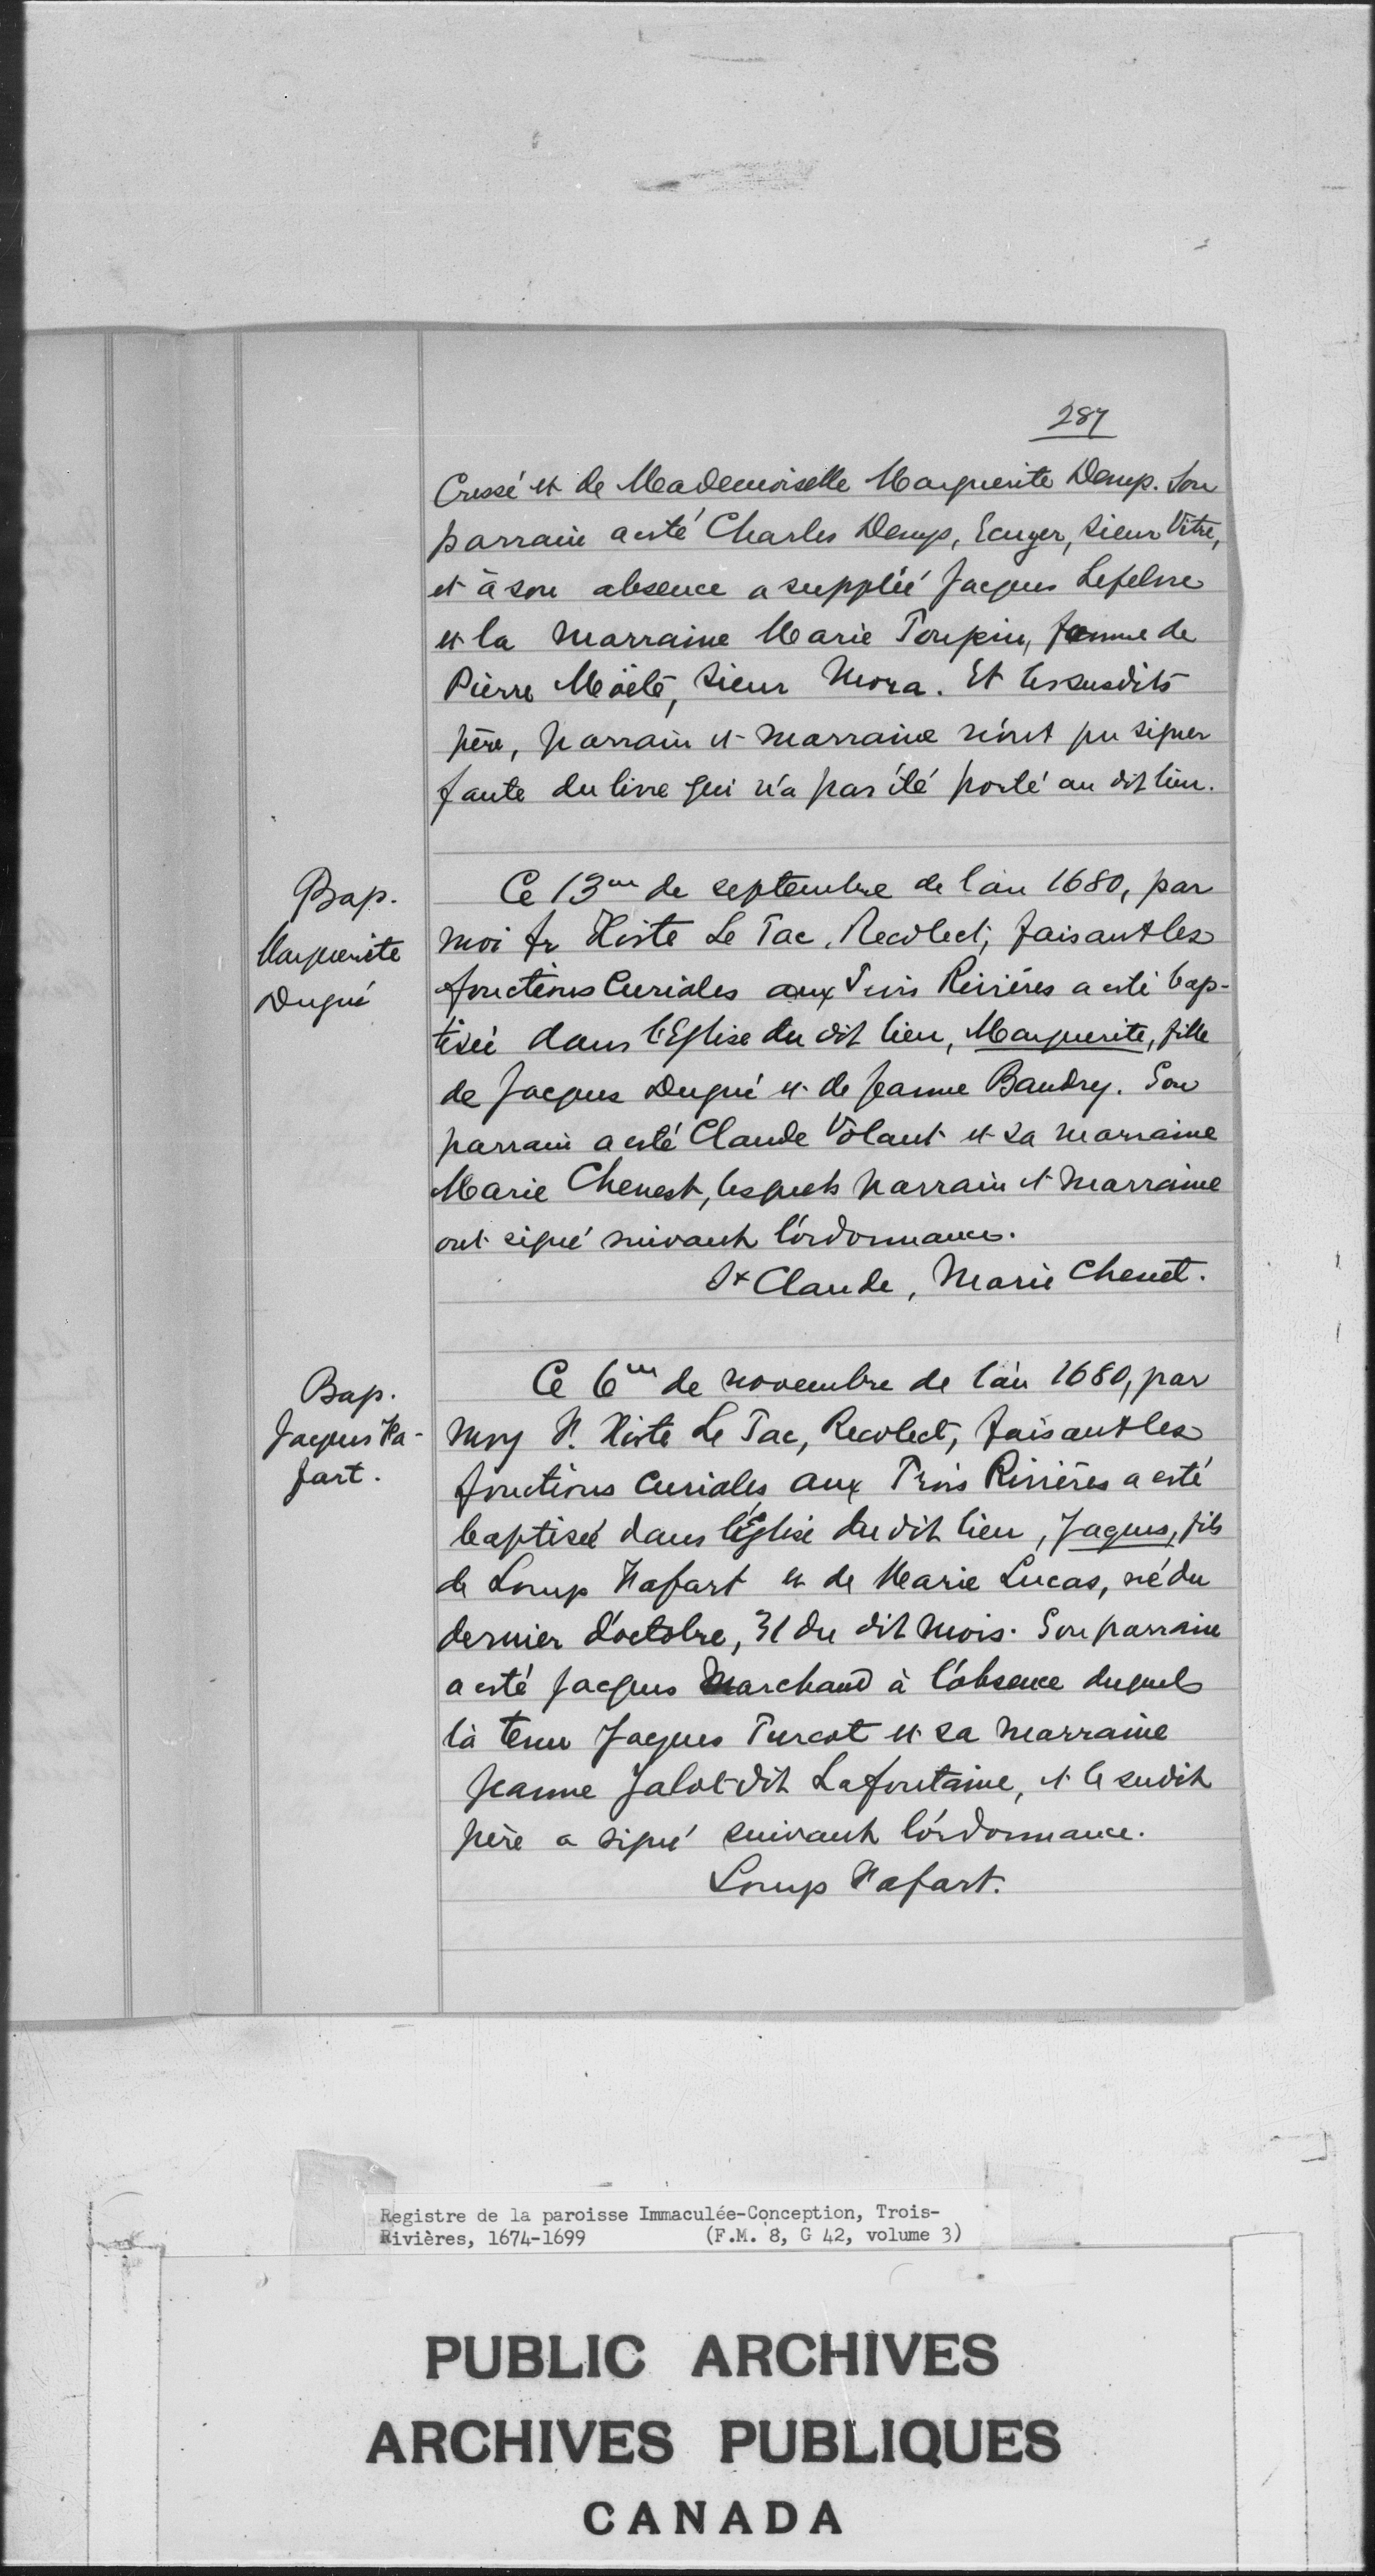 287
Cressé et de Mademoiselle Marguerite Denys. Son
parrain a esté Charles Denys, Ecuyer, Sieur Vitré,
et à son absence a supplié Jacques Lefebvre
et la marraine Marie Toupin, femme de
Pierre Moëlé, Sieur Mora. Et les susdits
père, parrain et marraine n'ont pu signer
faute du livre qui n'a pas été porté au dit lieu.
Bap.
Marguerite
Dugué
Ce 13me de septembre de l'an 1680, par
moi fr Xiste Le Tac, Recolect, faisant les
fonctions Curiales aux Trois Rivières a esté bap-
tisée dans l'Eglise du dit lieu, Marguerite, fille
de Jacques Dugué et de Jeanne Baudry. Son
parrain a esté Claude Volant et sa marraine
Marie Chenest, lesquels parrain et marraine
ont signé suivant l'ordonnance.
St Claude, Marie Chenet.
Bap.
Jacques Ha-
fart.
Ce 6me de novembre de l'an 1680, par
moy F. Xiste Le Tac, Recolect, faisant les
fonctions curiales aux Trois Rivières a esté
baptisé dans l'Église du dit lieu, Jaques, fils
de Loup Hafart et de Marie Lucas, né du
dernier d'octobre, 31 du dit mois. Son parraine
a esté Jacques Marchand à l'absence duquel
là tenu Jaques Turcot et sa marraine
Jeanne Jalot dit Lafontaine, et le sudit
père a signé suivant l'ordonnance.
Loup Hafart.
Registre de la paroisse Immaculée-Conception, Trois-
Rivières, 1674-1699 (F.M. 8, G 42, volume 3)
PUBLIC ARCHIVES
ARCHIVES PUBLIQUES
CANADA